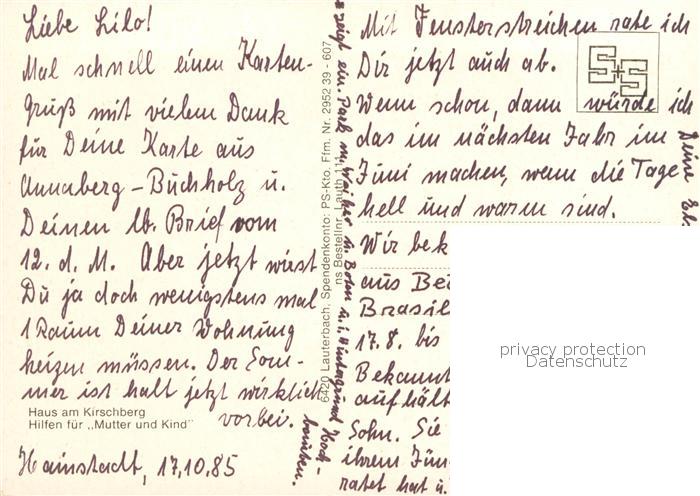 Liebe Lilo!
Mal schnell einen Karten-
gruß mit vielem Dank
für Deine Karte aus
Annaberg-Buchholz u.
Deinen lb. Brief vom
12. d. M. Aber jetzt wirst
Du ja doch wenigstens mal
1 Raum Deiner Wohnung
heizen müssen. Der Som-
mer ist halt jetzt wirklich
vorbei.
Haus am Kirschberg
Hilfen für „Mutter und Kind"
Hainstadt, 17.10.85
6420 Lauterbach, Spendenkonto: PS-Kto. Ffm. Nr. 2952 39 - 607
ns Bestellnr. Lauth 11
zeigt ein. Park m. Weiher u. Booten u. i. Hintergrund Hoch-
bauten.
S+S
Mit Fensterstreichen rate ich
Dir jetzt auch ab.
Wenn schon, dann würde ich
das im nächsten Jahr im
Juni machen, wenn die Tage
hell und warm sind.
Wir bek
aus Be
Brasil
17.8. bis
Bekannt
aufhält
Sohn. Sie
ihrem Jün
ratet hat u.
Deine
privacy protection
Datenschutz